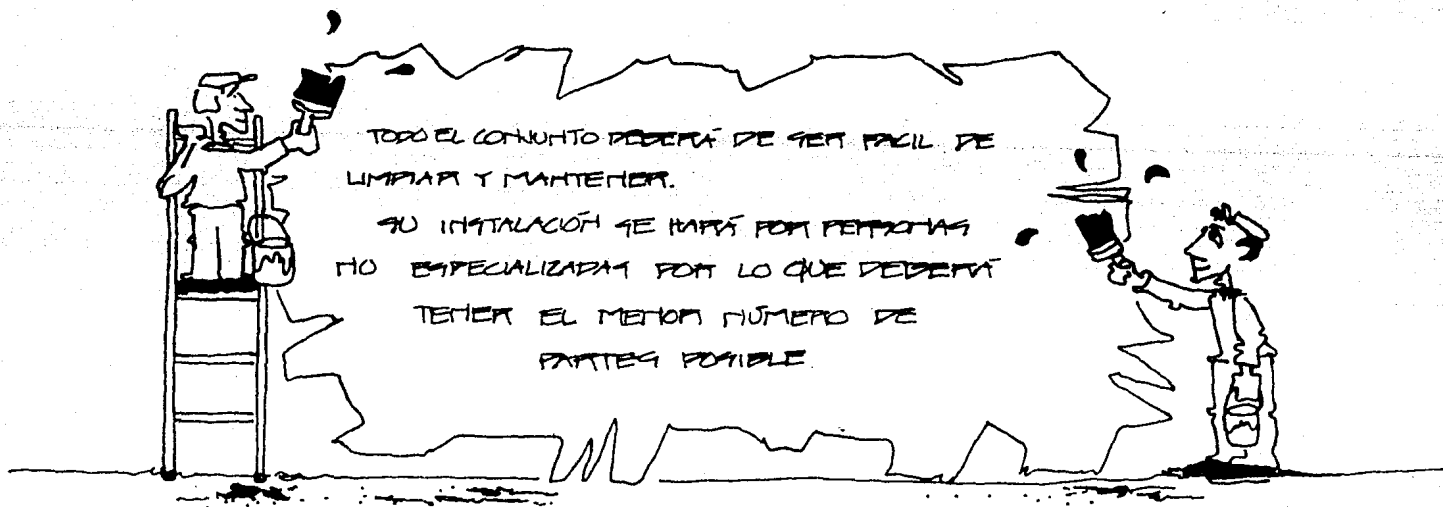 TODO EL CONJUNTO DEBERÁ DE SER FACIL DE
LIMPIAR Y MANTENER.
SU INSTALACIÓN SE HARÁ POR PERSONAS
NO ESPECIALIZADAS POR LO QUE DEBERÁ
TENER EL MENOR NÚMERO DE
PARTES POSIBLE